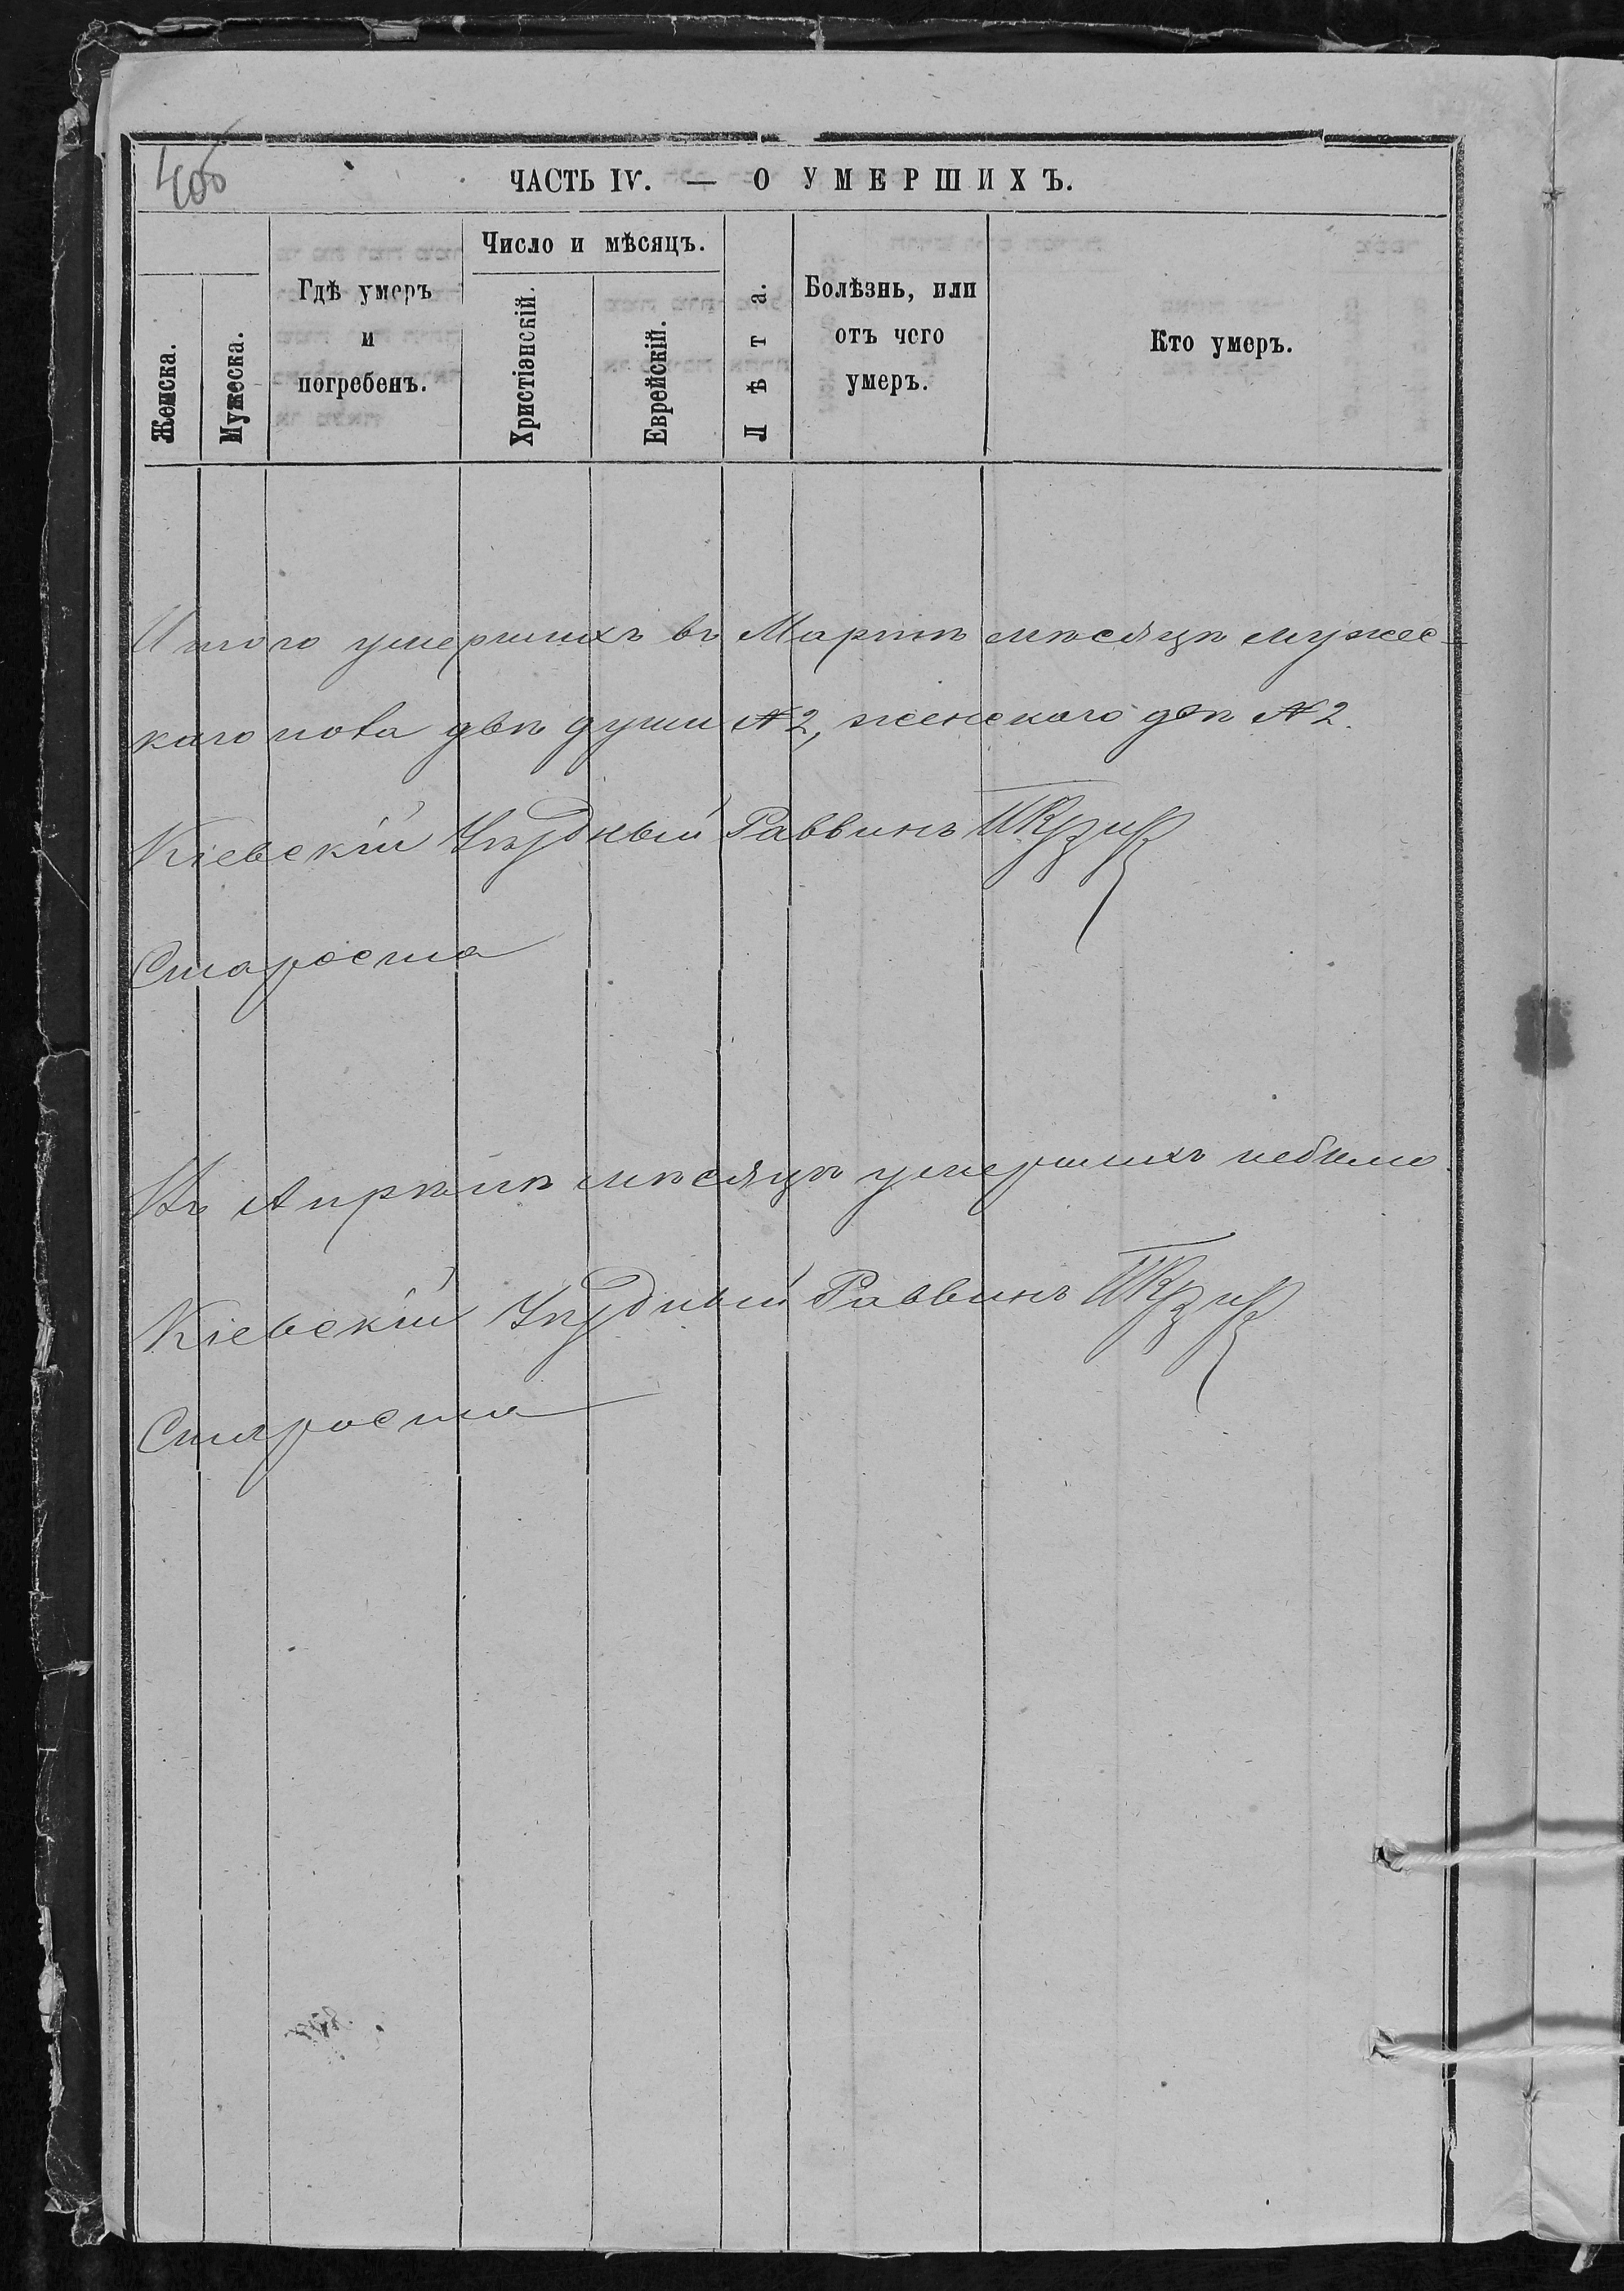 ЧАСТЬ IV. — О УМЕРШИХЪ.
Женска.
Мужеска.
Гдѣ умеръ
и
погребенъ.
Число и мѣсяцъ.
Христіанскій.
Еврейскій.
Лѣта.
Болѣзнь, или
отъ чего
умеръ.
Кто умеръ.
Итого умершихъ въ Мартѣ мѣсяцѣ мужес-
каго пола двѣ души №2, женскаго двѣ №2.
Кіевскій Уѣздный Раввинъ
Староста
Въ Апрѣлѣ мѣсяцѣ умершихъ небыло.
Кіевскій Уѣздный Раввинъ
Староста